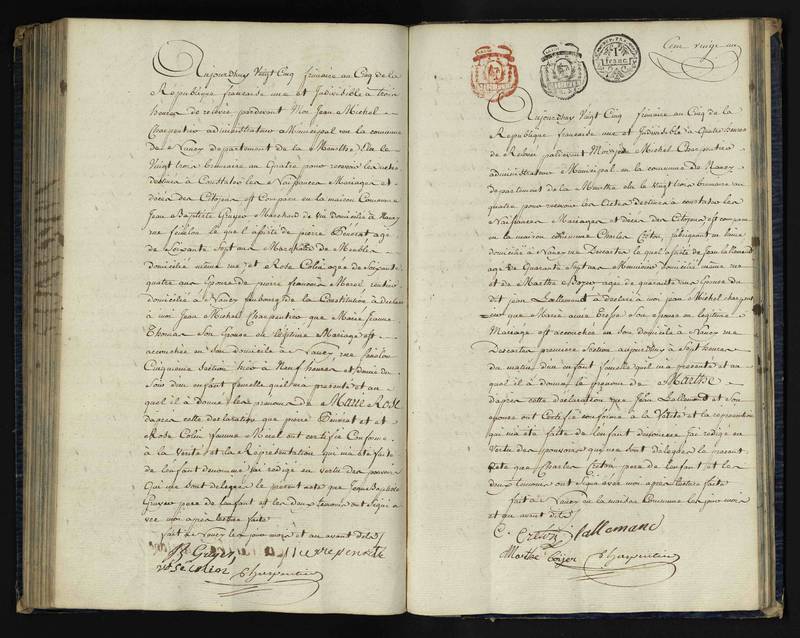 Aujourdhuy Vingt Cinq frimaire an Cinq de la
Republique francaise une et Indivisible à trois
heures de relevée pardevant Moi Jean Michel
Charpentier administrateur Municipal de la commune
de Nancy departement de la Meurthe Elu le
Vingt trois brumaire an Quatre pour recevoir les actes
destinés à Constater les Naissances Mariages et
décès des Citoyens est Comparu en la maison Commune
Jean Baptiste Gruyer Marchand de vin domicilié à Nancy
rue fenelon le quel assisté de pierre Penerat agé
de Soixante Sept ans Marchand de Meubles
domicilié même rue, et Rose Colin agée de Soixante
quatre ans Epouse de pierre francois Morel rentier
domicilié à Nancy faubourg de la Constitution à declaré
a moi Jean Michel Charpentier que Marie Jeanne
Thomas Son Epouse en légitime Mariage est
accouchée en Son domicile à Nancy, rue fenelon
Cinquieme Section hier à Neuf heures et demie du
Soir dun enfant femelle quil ma presenté et au
quel il à donné les prenoms de Marie Rose
dapres cette declaration que pierre Penerat et
Rose Colin femme Morel ont certifié Conforme
à la Verité et la Representation qui ma été faite
de lenfant denommé jai redigé en vertu des pouvoirs
Qui me sont delegués le present acte que Jean Baptiste
Gruyer pere de lenfant et les deux temoins ont Signé a
vec moi apres lecture faite
fait à Nancy les jour mois et an avant dits
JB Gruyer pierre penerat
rose colin Charpentier
1 franc
Cent vingt un
Aujourdhuy Vingt Cinq frimaire an Cinq de la
Republique francaise une et Indivisible à Quatre heures
de Relevé pardevant Moi Jean Michel Charpentier
administrateur Municipal en la commune de Nancy
departement de la Meurthe elu le Vingt trois brumaire an
quatre pour recevoir les actes destinés à constater les
Naissances Mariages et décès des Citoyens est comparu
en la maison commune Charles Creton, fabriquant en laine
domicilié à Nancy rue Descartes le quel assisté de Jean Lallemand
agé de Quarante Sept ans Menuisier domicilié même rue
et de Marthe Boyer agée de quarante ans Epouse du
dit Jean Lallemand à declaré à moi Jean Michel Charpent
ier que Marie anne Son epouse en légitime
Mariage est accouchée en Son domicile à Nancy rue
Descartes premiere Section aujourdhuy à Sept heures
du matin d'un enfant femelle quil ma presenté et au
quel il à donné le prenom de Marthe
dapres cette declaration que Jean Lallemand et Son
epouse ont Certifié conforme à la Vérité et la representation
qui ma été faite de lenfant denommé jai redigé en
Vertu des pouvoirs qui me sont delegués le present
Acte que Charles Creton pere de lenfant et les
deux temoins ont Signé avec moi apres lecture faite
fait à Nancy en la maison Commune les jour mois
et an avant dits
C. Creton Lallemand
Marthe Boyer Charpentier